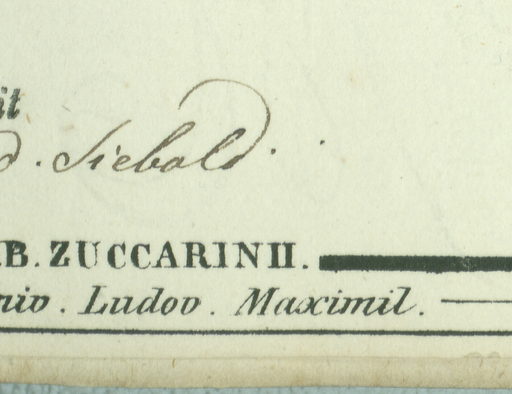 it
d. Siebold.
B. ZUCCARINII.
niv. Ludov. Maximil.